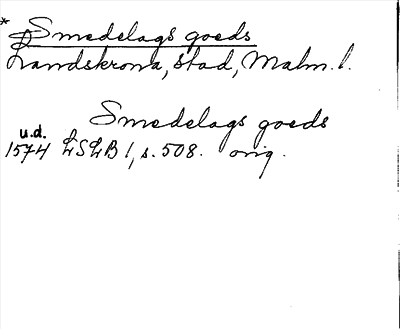 * Smedelags goeds
Landskrona, stad, Malm. l.
Smedelags goeds
u.d.
1574 LSLB 1, s. 508. orig.